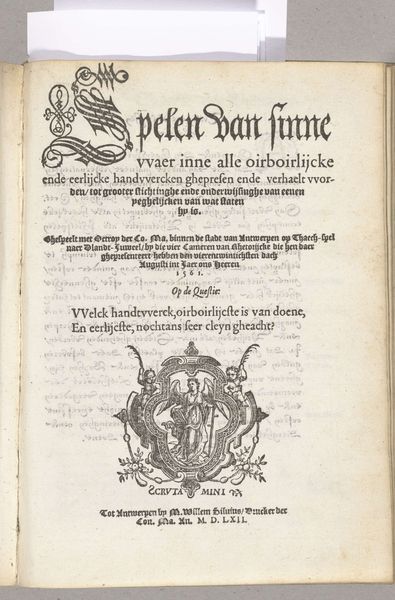 Spelen van sinne
vvaer inne alle oirboirlijcke
ende eerlijcke handvvercken ghepresen ende verhaelt vvor-
den/ tot grooter stichtinghe ende onderwijsinghe van eenen
yeghelijcken van wat staten
hy is.
Ghespeelt met Octroy der Co. Ma. binnen de stadt van Antwerpen op Thaech-spel
naer Dlandt-Juweel/ by die vier Cameren van Rhetorijcke die hen daer
ghepresenteert hebben den vierentwintichsten dach
Augusti int Jaer ons Heeren
1561.
Op de Questie:
VVelck handtvverck, oirboirlijcste is van doene,
En eerlijcste, nochtans seer cleyn gheacht?
SCRVTA MINI
Tot Antwerpen by M. Willem Siluius/ Drucker der
Con. Ma. An. M. D. LXII.